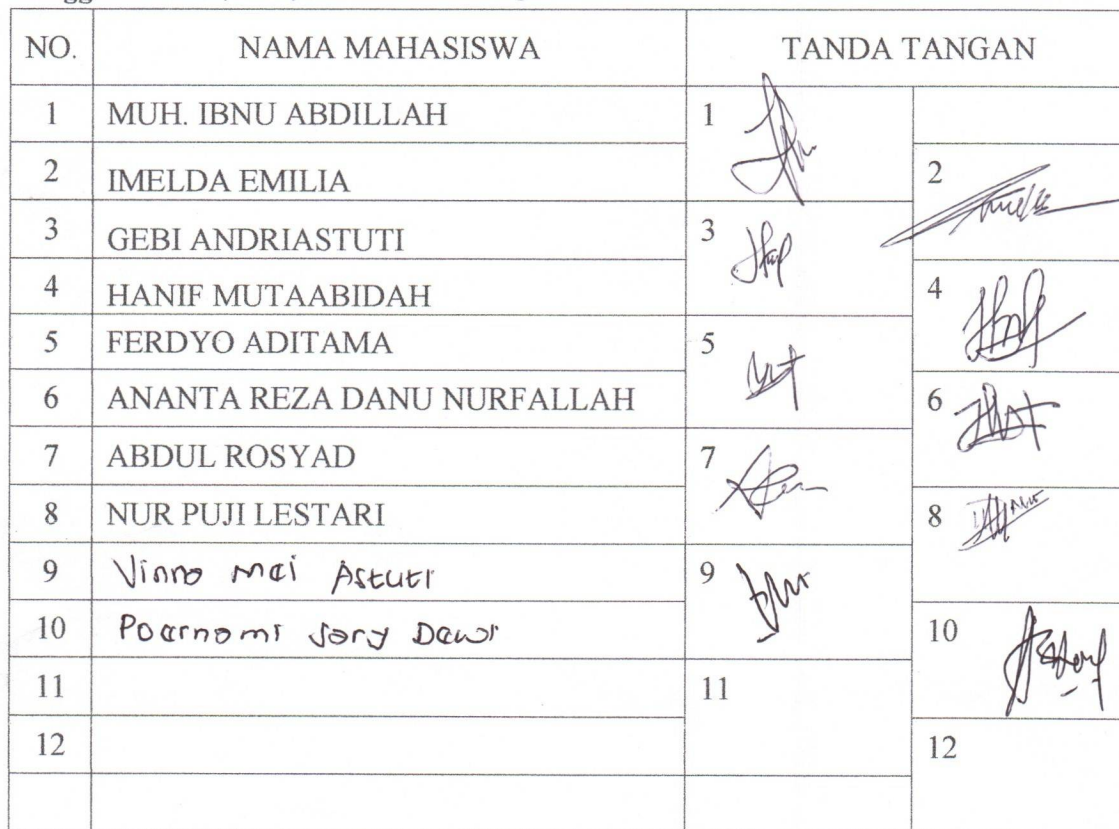 NO. NAMA MAHASISWA TANDA TANGAN
1 MUH. IBNU ABDILLAH 1
2 IMELDA EMILIA 2
3 GEBI ANDRIASTUTI 3
4 HANIF MUTAABIDAH 4
5 FERDYO ADITAMA 5
6 ANANTA REZA DANU NURFALLAH 6
7 ABDUL ROSYAD 7
8 NUR PUJI LESTARI 8
9 Vinno Mei Astuti 9
10 Poernomi Sary Dewi 10
11 11
12 12